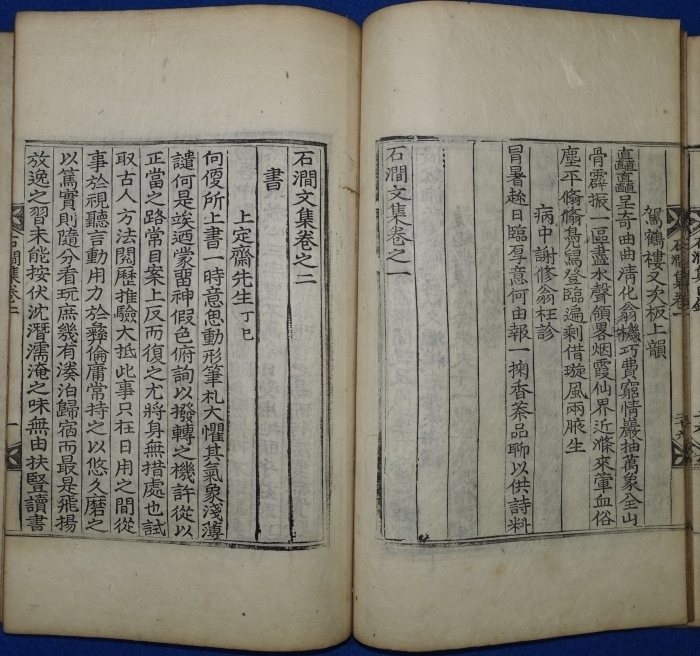 駕鶴樓又次板上韻
矗矗呈奇曲曲淸化翁機巧費竆情巖抽萬象全山
骨霹振一區盡水聲領畧烟霞仙界近滌來葷血俗
塵平翛翛鳧舃登臨遍剩借璇風兩腋生
病中謝修翁枉診
冒暑趍日臨厚意何由報一掬香茶品聊以供詩料
石澗文集卷之一
石澗文集卷之二
書
上定齋先生丁巳
向偄所上書一時意思動形筆札大懼其氣象淺薄
譴何是竢迺蒙霤神假色俯詢以撥轉之機許從以
正當之路常目案上反而復之尤將身無措處也試
取古人方法閱歷推驗大抵此事只在日用之間從
事於視聽言動用力於彜倫庸常持之以悠久磨之
以篤實則隨分看玩庶幾有湊泊歸宿而最是飛揚
放逸之習未能按伏沈潛濡淹之味無由扶竪讀書
石澗集卷二
一